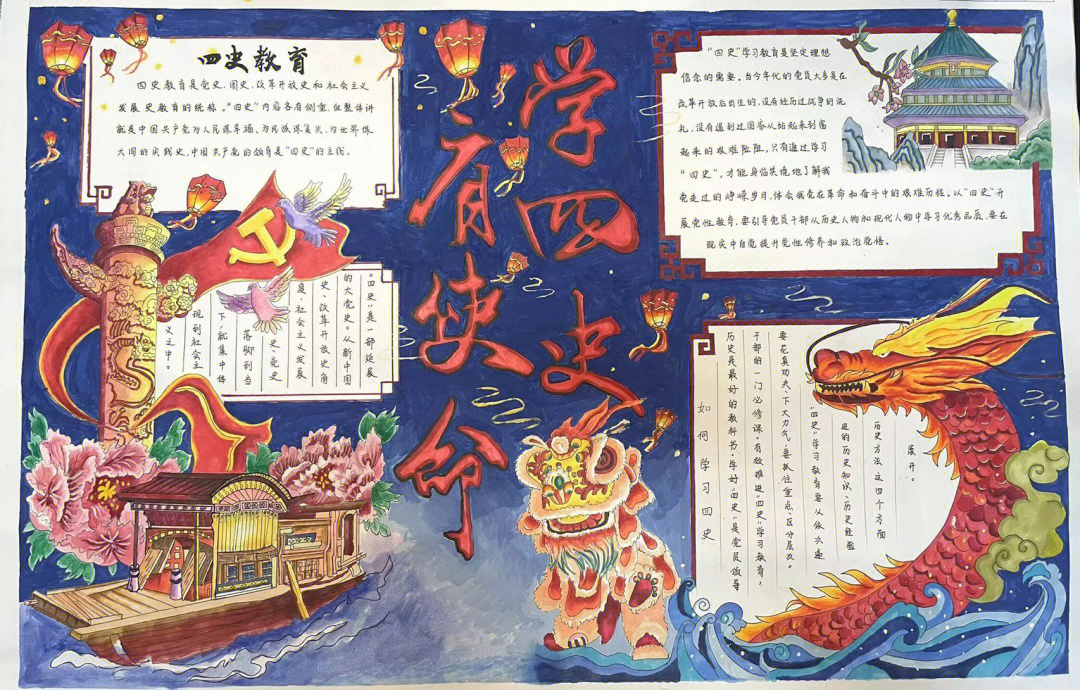 学四史
有使命
四史教育
四史教育是党史、国史、改革开放史和社会主义
发展史教育的统称。"四史"内容各有侧重,但整体讲
就是中国共产党为人民谋幸福、为民族谋复兴、为世界谋
大同的实践史,中国共产党的领导是"四史"的主线。
"四史"是一部延展
的大党史。从新中国
史、改革开放史角
度,社会主义发展
史、党史
落脚到当
下,就集中体
现到社会主
义之中。
"四史"学习教育是坚定理想
信念的需要。当今年代的党员大多是在
改革开放后出生的,没有经历过战争的洗
礼,没有遇到过国家从站起来到富
起来的艰难险阻,只有通过学习
"四史",才能身临其境地了解我
党走过的峥嵘岁月,体会我党在革命和奋斗中的艰难历程。以"四史"开
展党性教育,要引导党员干部从历史人物和现代人物中学习优秀品质,要在
现实中自觉提升党性修养和政治觉悟。
如何学习四史
历史是最好的教科书。学好"四史"是党员领导
干部的一门必修课。有效推进"四史"学习教育,
要花真功夫、下大力气,要抓住重点、区分层次。
"四史"学习教育要从依次递
进的历史知识、历史经验
历史方法 这四个方面
展开。